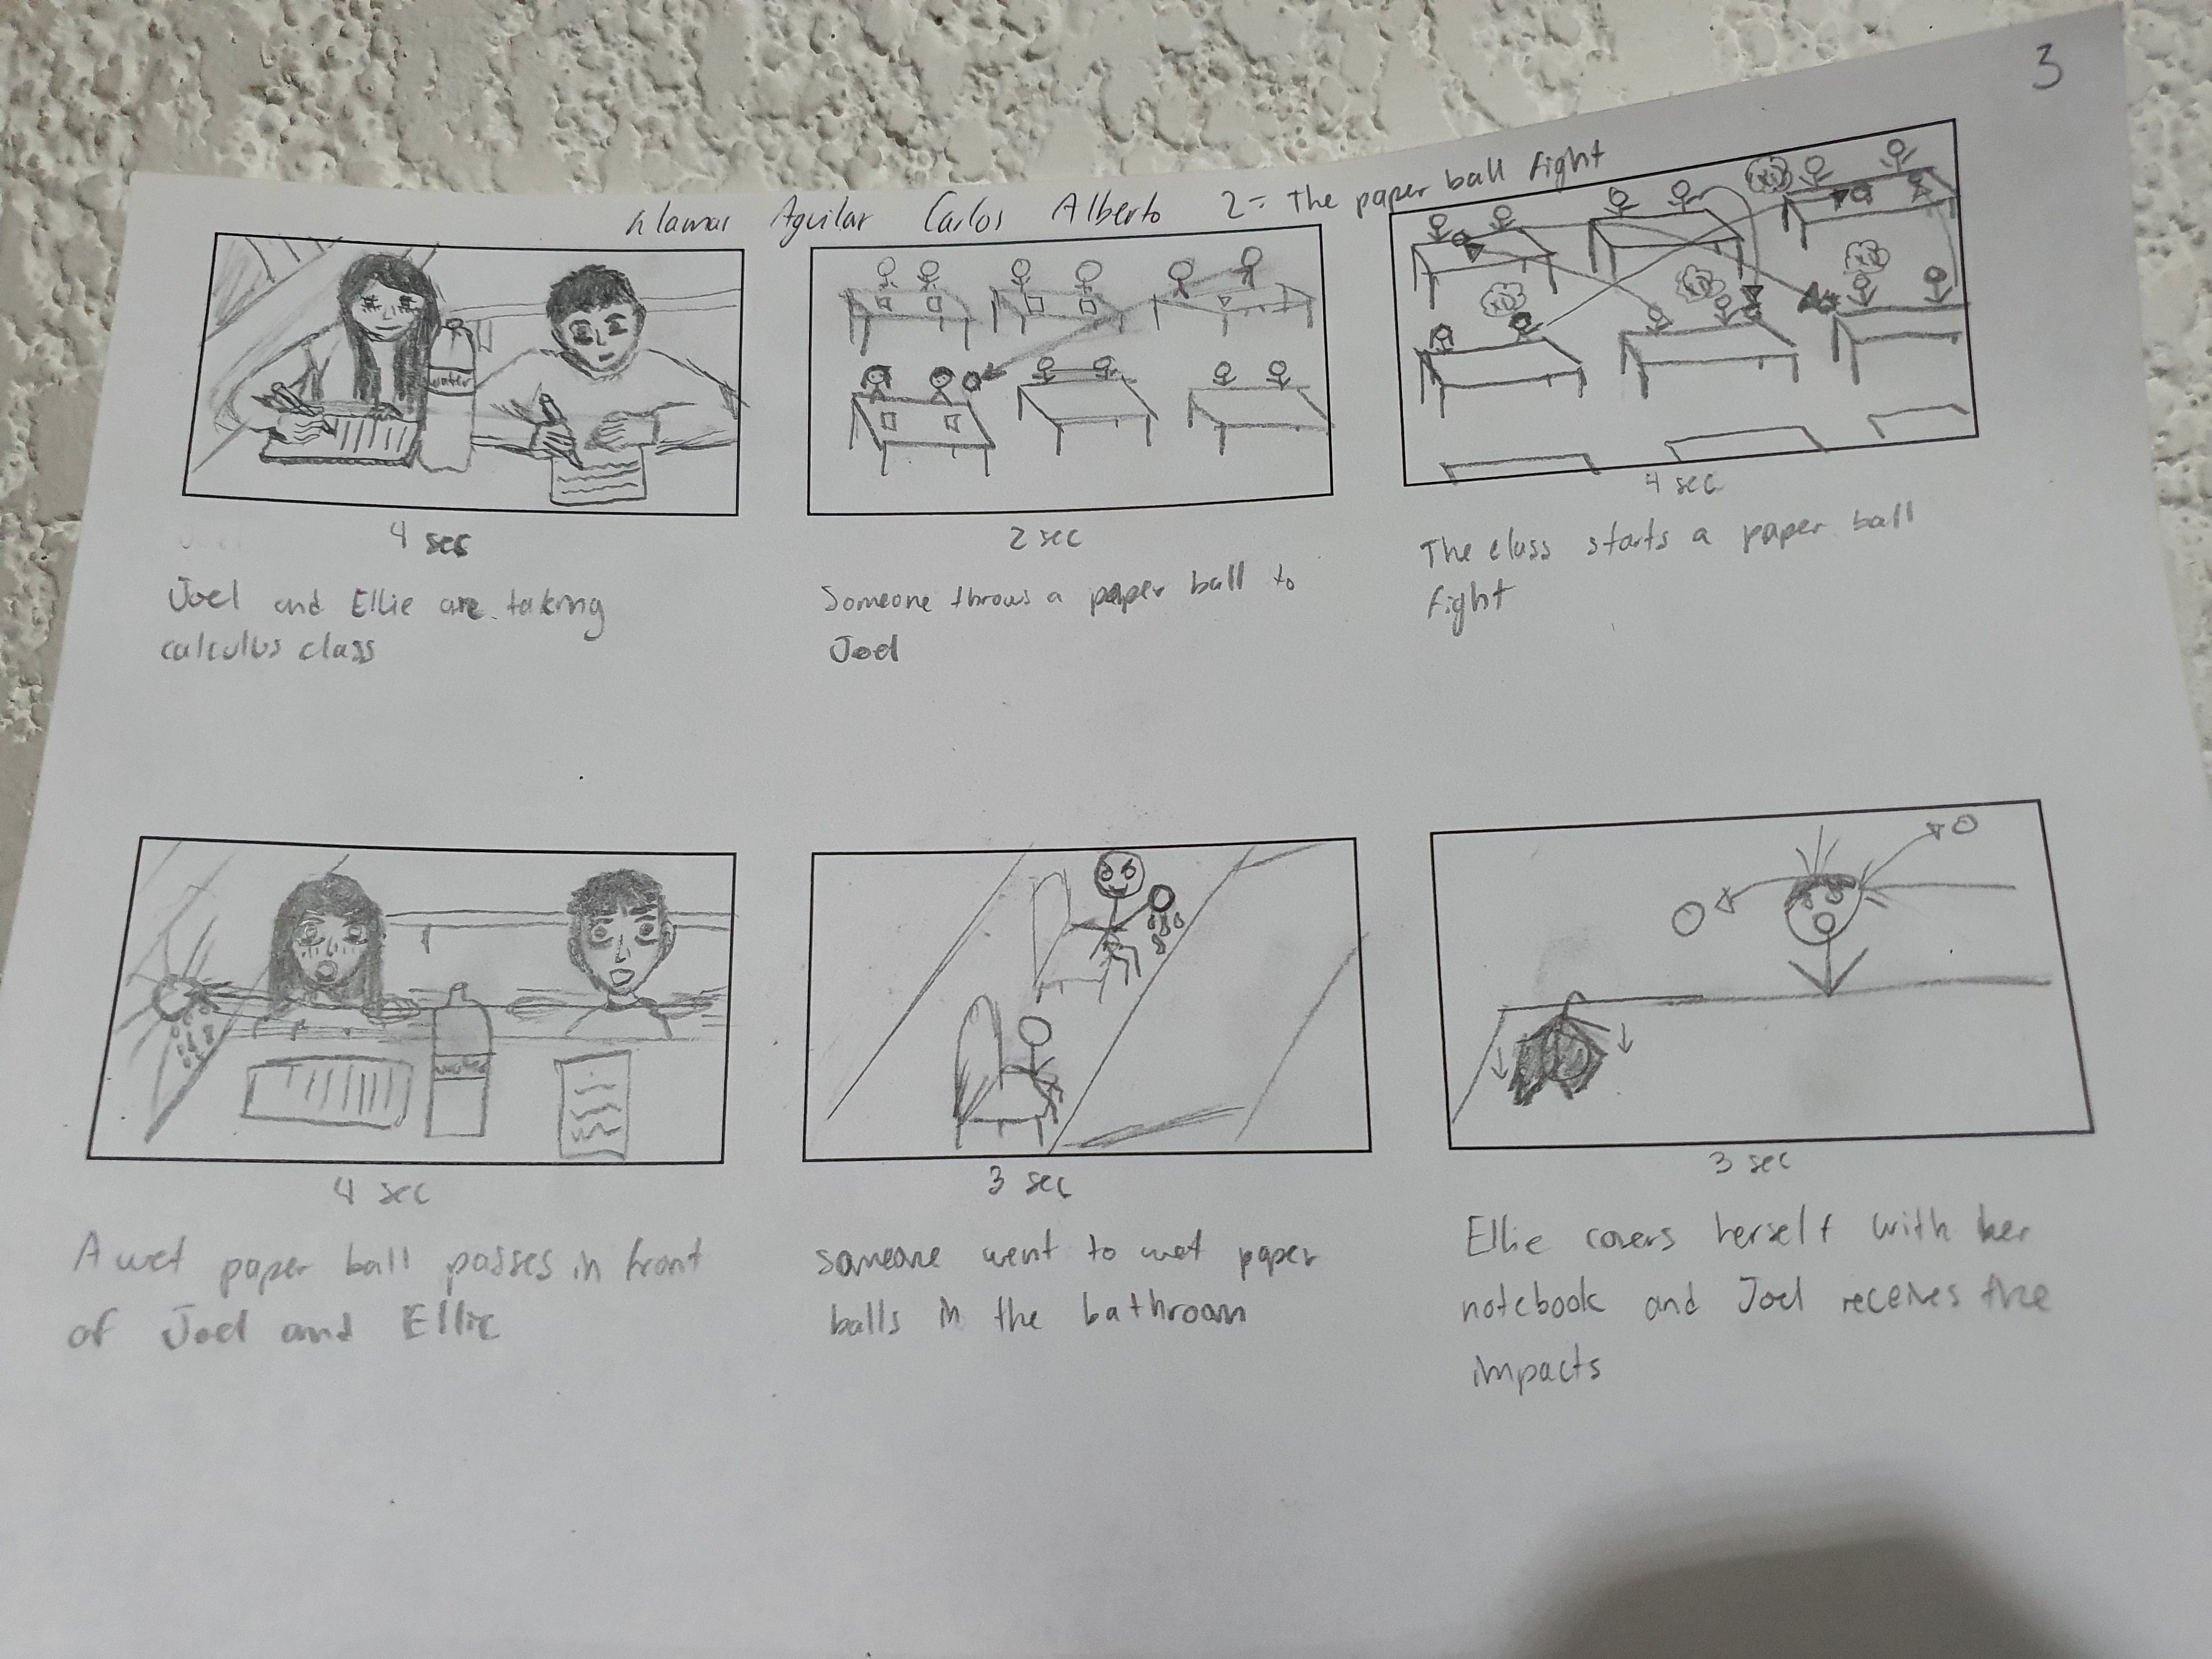 3
Alamas Aguilar Carlos Alberto 2- The paper ball fight
water
4 sec
2 sec
4 sec
Joel and Ellie are taking
calculus class
Someone throws a paper ball to
Joel
The class starts a paper ball
fight
4 sec
3 sec
3 sec
A wet paper ball passes in front
of Joel and Ellie
someone went to wet paper
balls in the bathroom
Ellie covers herself with her
notebook and Joel receives the
impacts